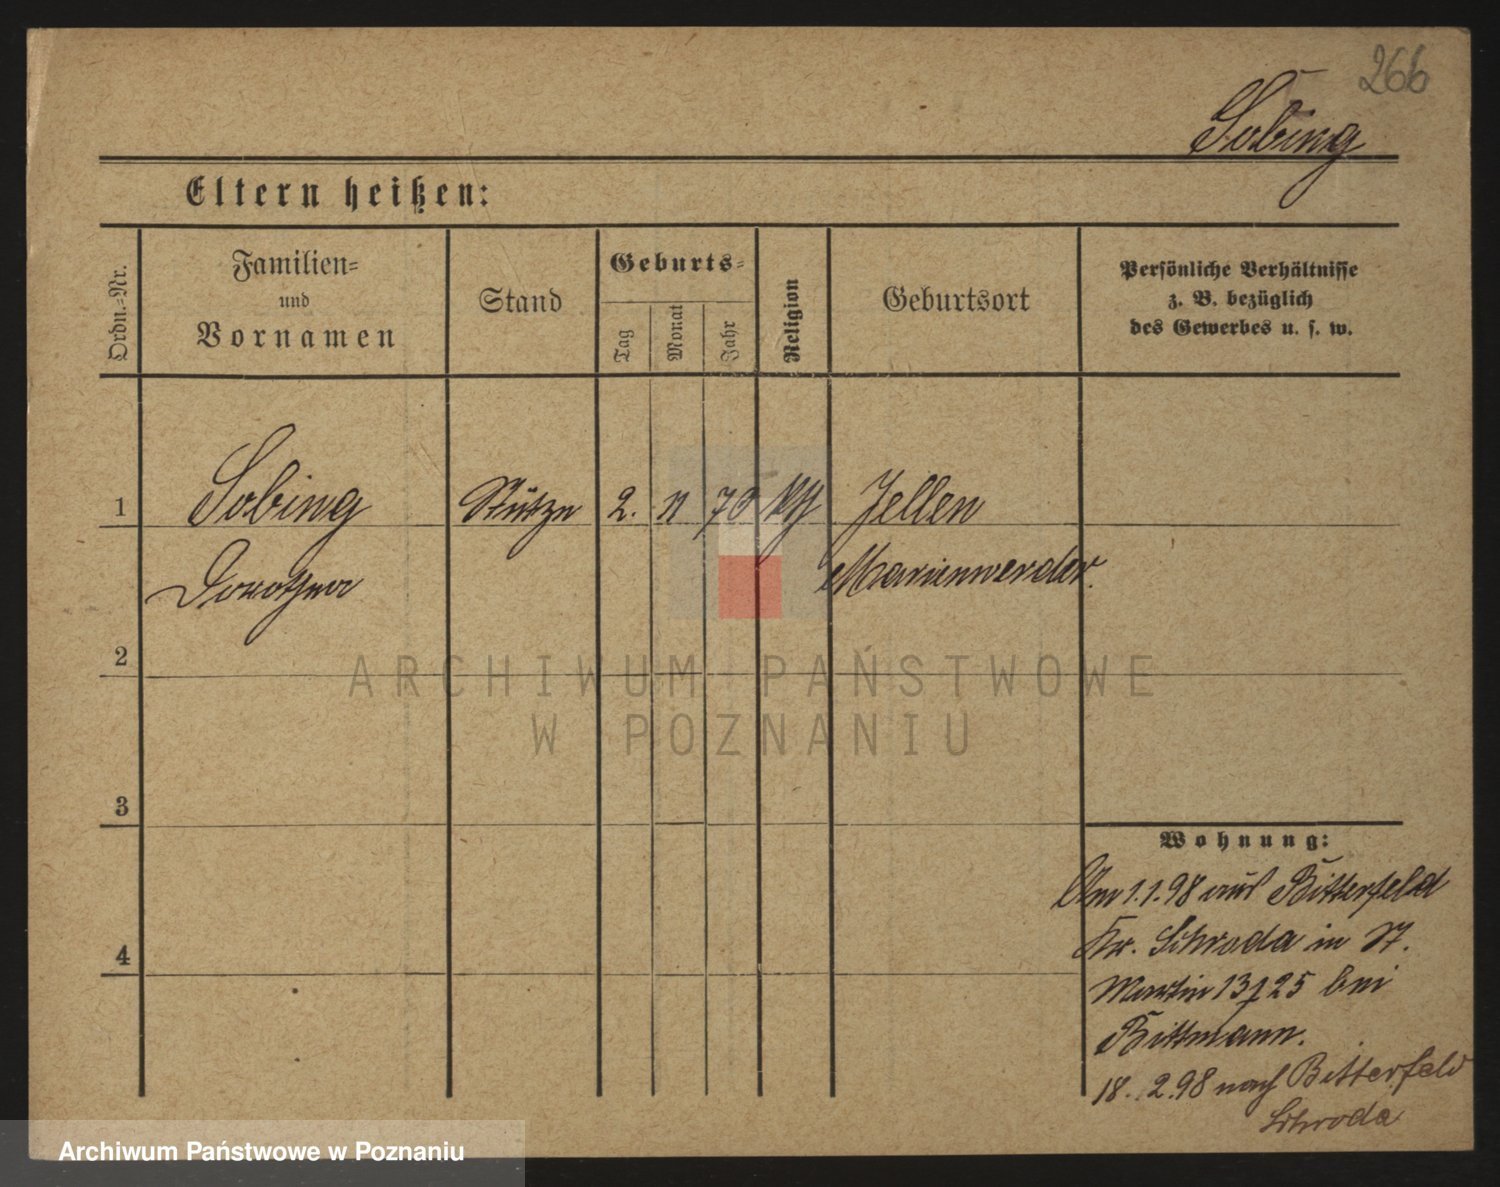 266
Sobing
Eltern heißen:
Ordn.-Nr.
Familien-
und
Vornamen
Stand
Geburts-
Tag
Monat
Jahr
Religion
Geburtsort
Persönliche Verhältnisse
z. B. bezüglich
des Gewerbes u. s. w.
1
Sobing
Stütze
2.
70
Jellen
Dorothea
Marienwerder.
2
ARCHIWUM PAŃSTWOWE
W POZNANIU
3
4
Wohnung:
Am 1.1.98 aus Bitterfeld
Kr. Schroda in St.
Martin 13/25 bei
Bittmann.
18. 2.98 nach Bitterfeld
Schroda
Archiwum Państwowe w Poznaniu